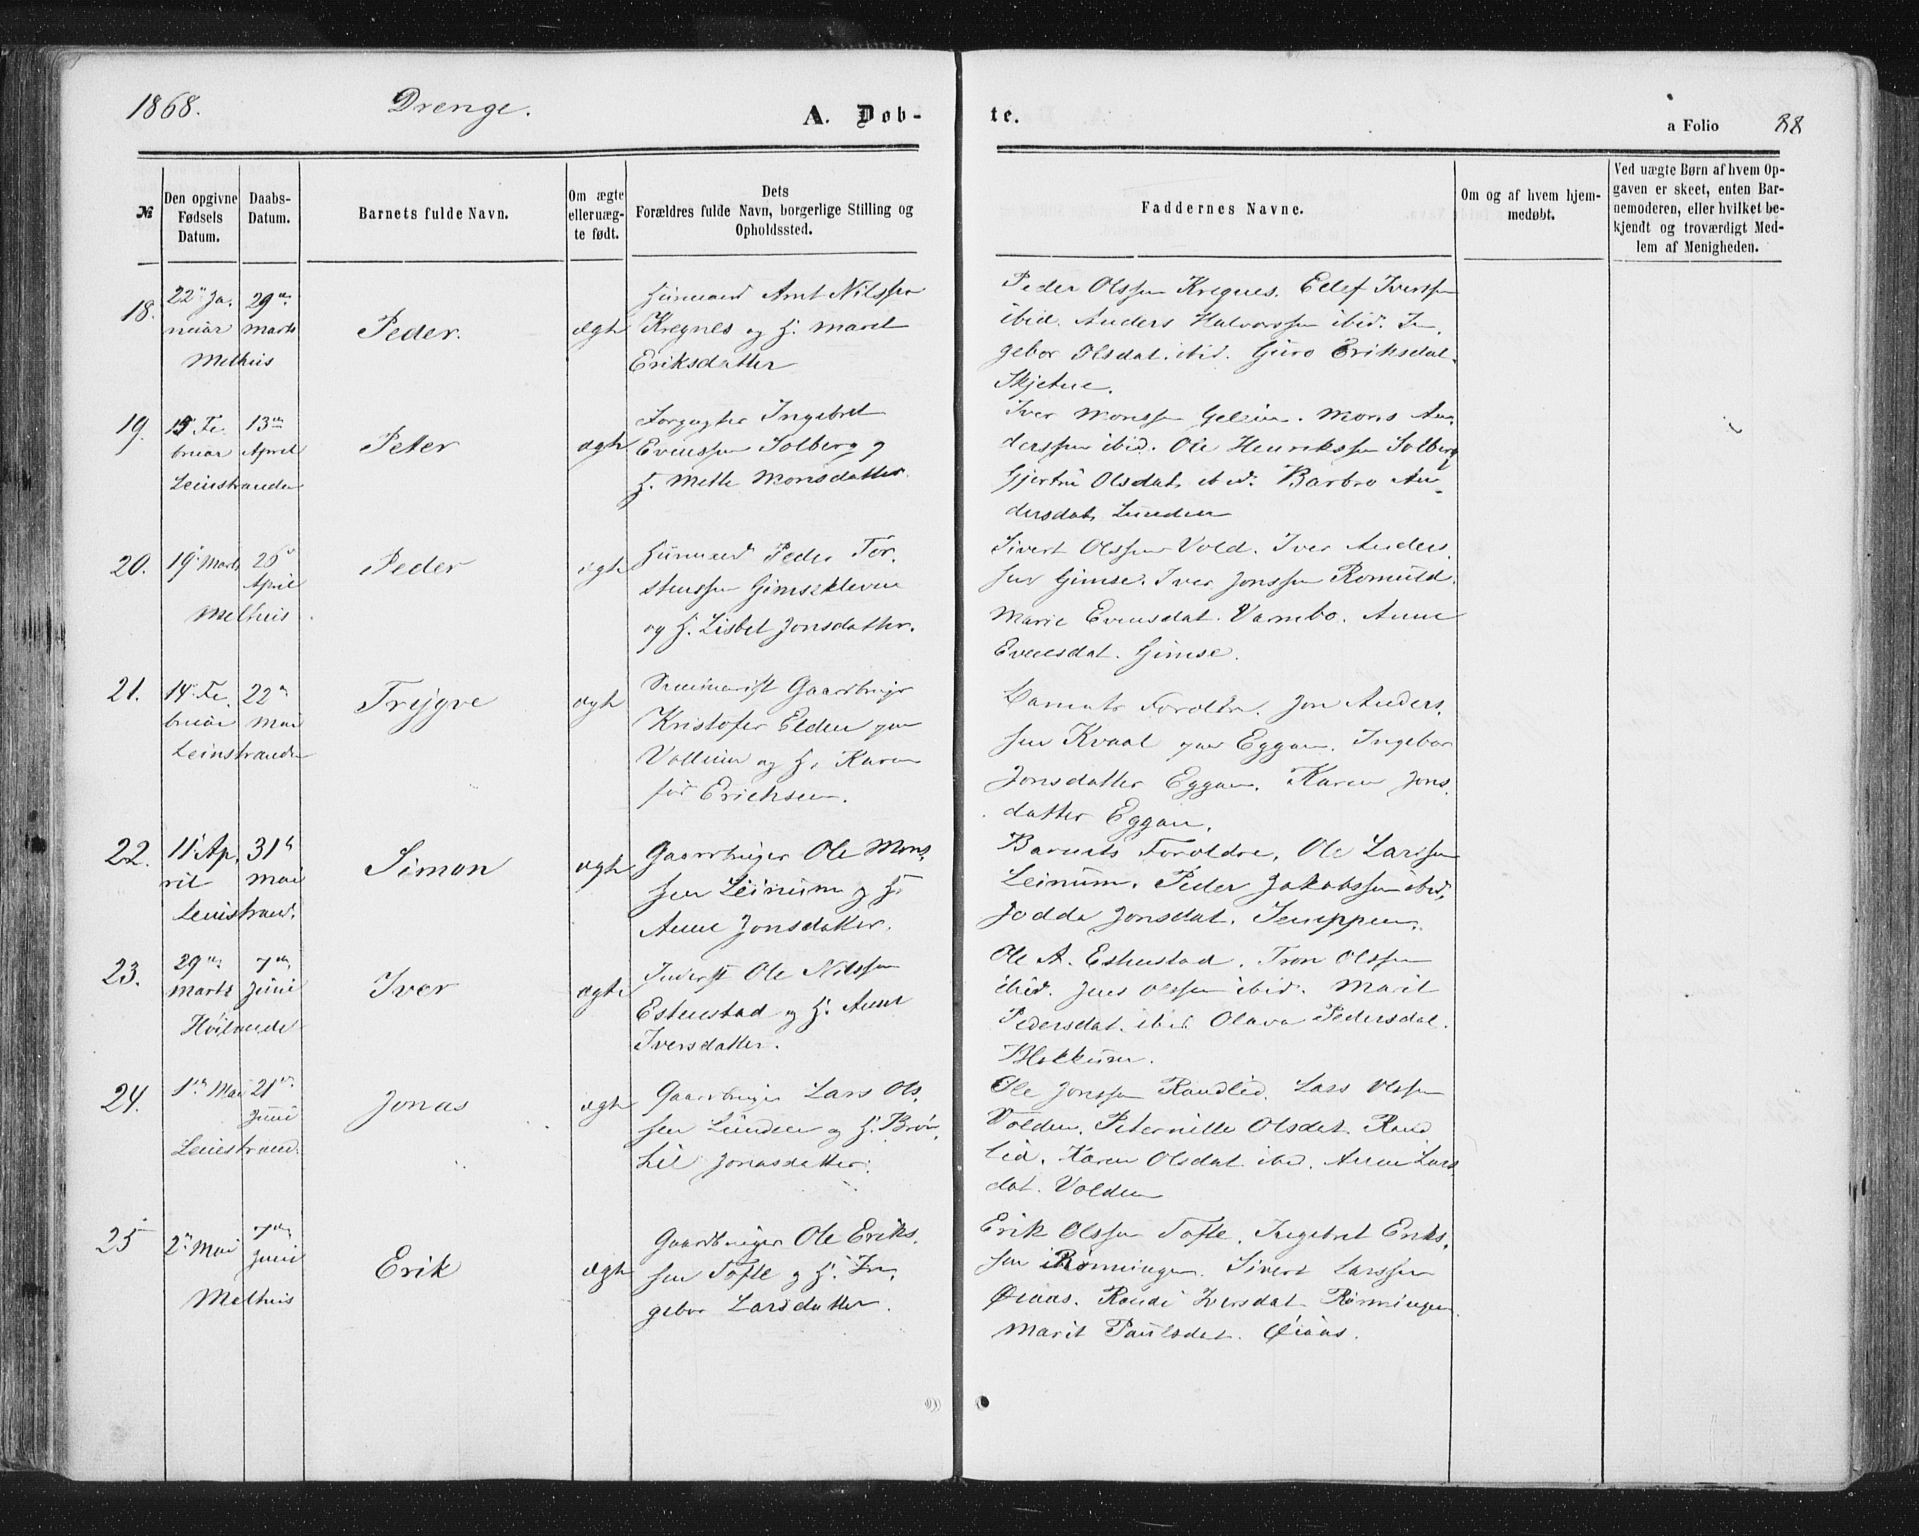 1868. Drenge. A. Døb- te. a Folio 88
№
Den opgivne Fødsels Datum.
Daabs-Datum.
Barnets fulde Navn.
Om ægte eller uæg-te født.
Dets Forældres fulde Navn, borgerlige Stilling og Opholdssted.
Faddernes Navne.
Om og af hvem hjem-medøbt.
Ved uægte Børn af hvem Op-gaven er skeet, enten Bar-nemoderen, eller hvilket be-kjendt og troværdigt Med-lem af Menigheden.
18. 22 Ja-nuar 29 Marts Melhus
Peder.
ægte
Huusmand Arnt Nilssen
Kregnes og H. Maret
Eriksdatter
Peder Olssen Kregnes. Ellef Iverssen
ibid. Anders Halvorssen ibid. In-
gebor Olsdat. ibid. Guro Eriksdat.
Skjetne.
19. 15 Fe-bruar 13 April Leinstranden
Peter
ægte
Ingebret
Evenssen Solberg og
H. Mette Monsdatter.
Iver Monssen Mons An-
derssen ibid. Ole Henrikssen Solberg
Gjertru Olsdat. ibid. Barbro An-
dersdat. Lunden
20. 19 Marts 26 April Melhus
Peder
ægte
Huusmand Peder Tor-
stenssen Gimseklevene
og H. Lisbet Jonsdatter.
Sivert Olssen Vold. Iver Anders-
sen Gimse. Iver Jonssen Romuld.
Marie Evensdat. Varmbo. Anne
Evensdat. Gimse.
21. 14 Fe-bruar 22 Mai Leinstranden
Trygve
ægte
Seminarist Gaardbruger
Kristofer Elden paa
og H. Karen
Erichsen.
Barnets Foreldre. Jon Anders-
sen Kvaal paa Eggan. Ingebor
Jonsdatter Eggan. Karen Jons-
datter Eggan.
22. 11 Ap-ril 31 Mai Leinstrand.
Simon
ægte
Gaardbruger Ole Mons-
sen Leinum og H.
Anne Jonsdatter.
Barnets Foreldre. Ole Larssen
Leinum. Peder Jakobssen ibid.
Jonsdat.
23. 29 Marts 7 Juni Høilandet
Iver
ægte
Inderst Ole Nilssen
Estenstad og H. Anne
Iversdatter.
Ole A. Estenstad. Tron Olssen
ibid. Jens Olssen ibid. Marit
Pedersdat. ibid Olava Pedersdat.
24. 1 Mai 21 Juni Leinstrand.
Jonas
ægte
Gaardbruger Lars Ols-
sen Lunden og H. Brøn-
hil Jonasdatter.
Ole Jonssen Randlid. Lars Olssen
Volden. Peternille Olsdat. Rand
lid. Karen Olsdat ibid. Anne Lars
dat. Volden
25 2 Mai 7 Juni Melhus
Erik
ægte
Gaardbruger Ole Eriks-
sen Tofte og H. In-
gebor Larsdatter.
Erik Olssen Tofte. Ingebret Eriks-
sen Rønningen. Sivert Larssen
Øiaas. Randi Iversdat. Rønningen
Marit Paulsdat. Øiaas.